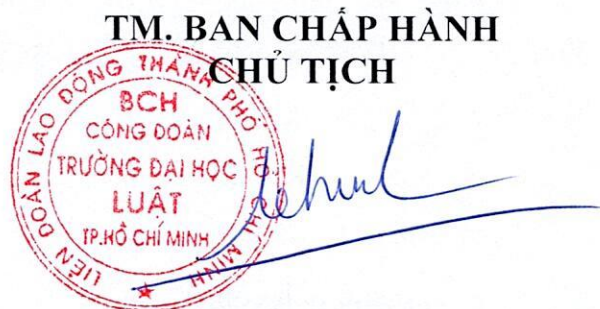 TM. BAN CHẤP HÀNH
CHỦ TỊCH
LIÊN ĐOÀN LAO ĐỘNG THÀNH PHỐ HỒ CHÍ MINH
BCH
CÔNG ĐOÀN
TRƯỜNG ĐẠI HỌC
LUẬT
TP.HỒ CHÍ MINH